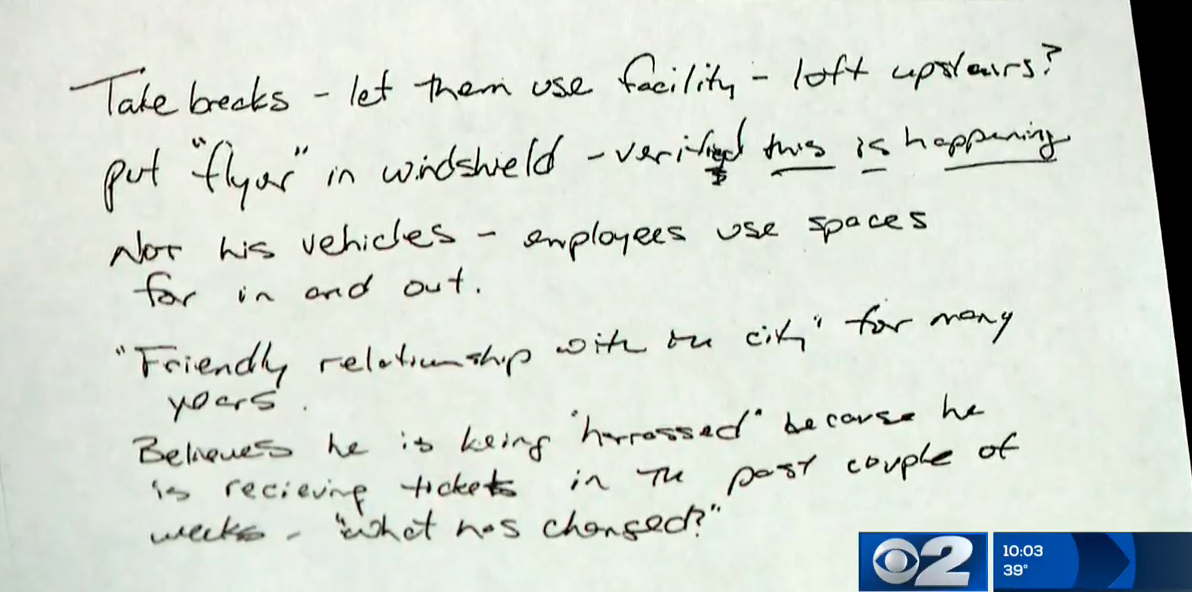 Take breaks - let them use facility - loft upstairs?
put "flyer" in windshield - verified this is happening
Not his vehicles - employees use spaces
for in and out.
"Friendly relationship with the city" for many
years.
Believes he is being "harrassed" because he
is recieving tickets in the past couple of
weeks - "what has changed?"
2
10:03
39°